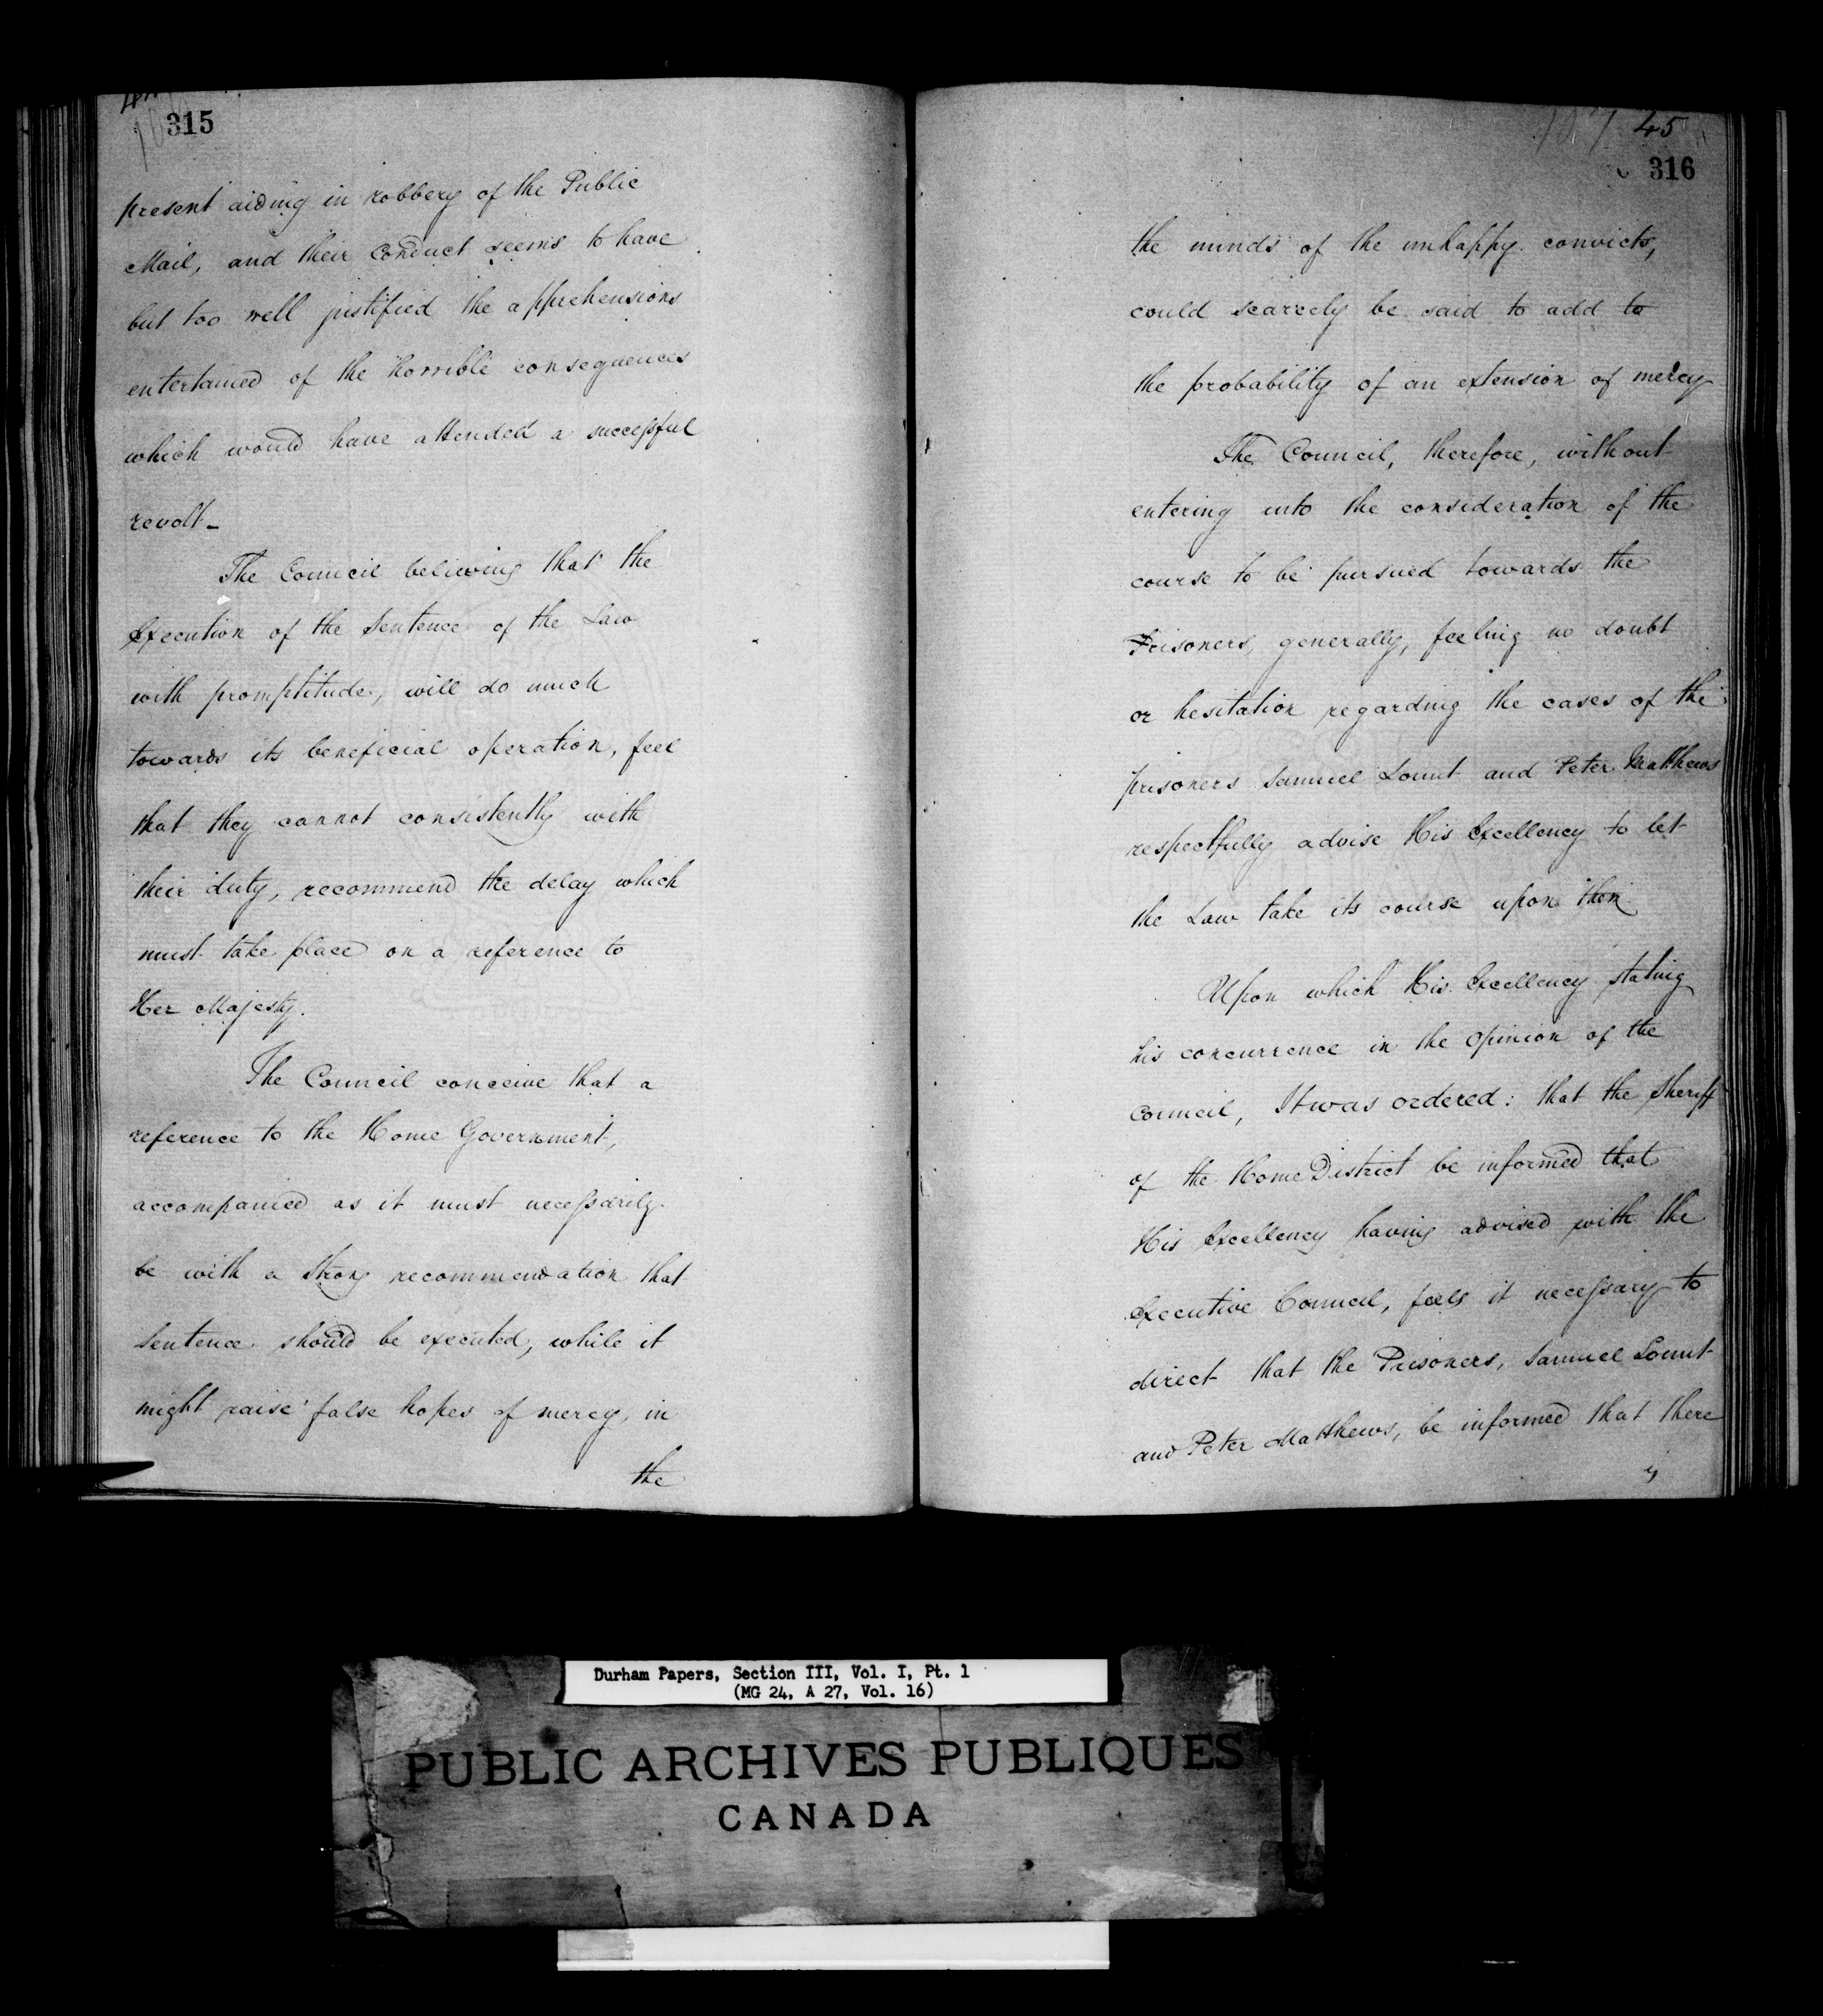 315
present aiding in robbery of the Public
Mail, and their Conduct seems to have
but too well justified the apprehensions
entertained of the horrible consequences
which would have attended a successful
revolt_
The Council believing that the
Execution of the Sentence of the Law
with promptitude, will do much
towards its beneficial operation, feel
that they cannot consistently with
their duty, recommend the delay which
must take place on a reference to
Her Majesty.
The Council conceive that a
reference to the Home Government,
accompanied as it must necessarily
be with a strong recommendation that
Sentence should be executed, while it
might raise false hopes of mercy, in
the
45
316
the minds of the unhappy convicts,
could scarcely be said to add to
the probability of an extension of mercy
The Council, therefore, without
entering into the consideration of the
course to be pursued towards the
Prisoners, generally, feeling no doubt
or hesitation regarding the cases of the
prisoners Samuel Lount and Peter Matthews
respectfully advise His Excellency to let
the Law take its course upon them.
Upon which His Excellency stating
his concurrence in the opinion of the
Council, It was ordered: that the Sheriff
of the Home District be informed that
His Excellency having advised with the
Executive Council, feels it necessary to
direct that the Prisoners, Samuel Lount
and Peter Matthews, be informed that there
Durham Papers, Section III, Vol. I, Pt. 1
(MG 24, A 27, Vol. 16)
PUBLIC ARCHIVES PUBLIQUES
CANADA